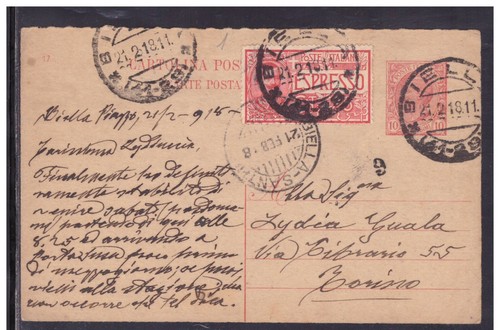 BIELLA
21.2.18.11
(T.-28)
CARTOLINA POSTALE
CARTE POSTA
POSTE ITALIANE
ESPRESSO
BIELLA
21.2.18.11
(T.-28)
BIELLA
21.2.18.11
10
BIELLA-S
21 FEB 18
9
Biella Piazzo, 21/2 - 918 -
Carissima Lydiuccia,
Finalmente ho definiti
vamente stabilito di
venire sabato
partendo di qui alle
8,25 ed arrivando a
Porta Susa poco prima
di mezzogiorno; se puoi,
vieni alla stazione
non occorre
Alla Sig.na
Lydia Guala
Via Cibrario 55
Torino